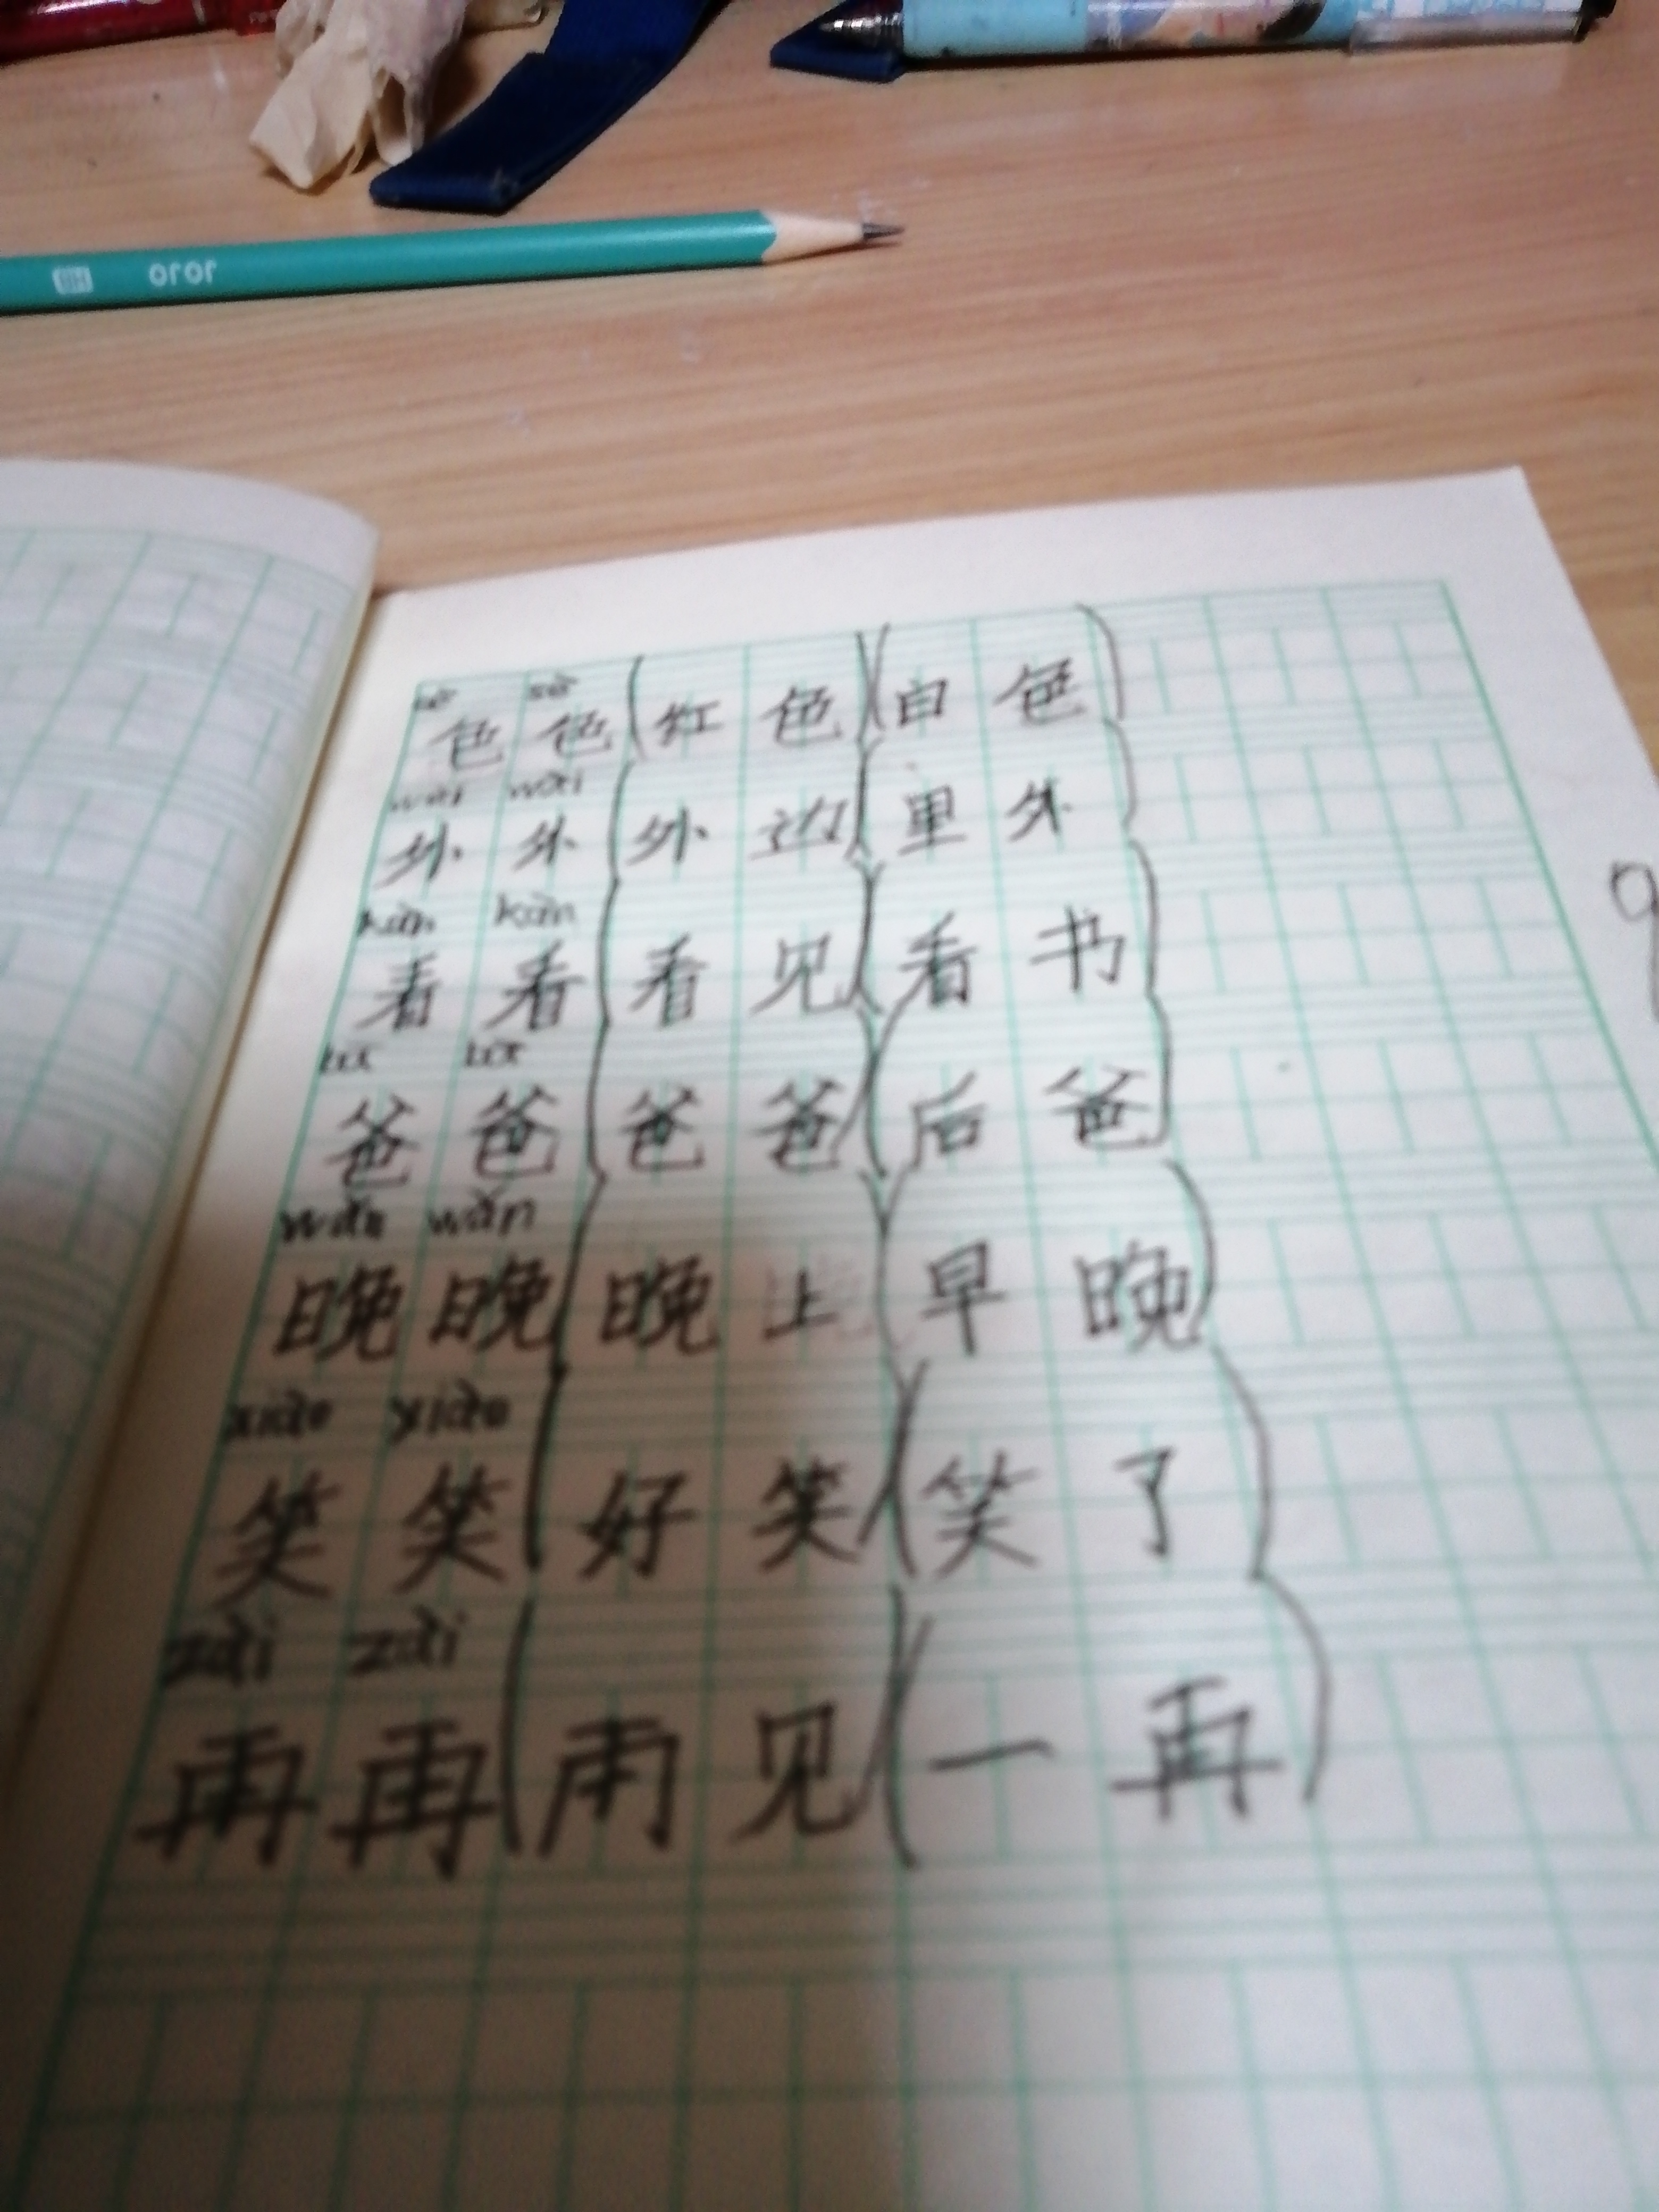 HB 1010
sè sè
色 色 (红 色)(白 色)
wài wài
外 外 (外 边)(里 外)
kàn kàn
看 看 (看 见)(看 书)
bà bà
爸 爸 (爸 爸)(后 爸)
wǎn wǎn
晚 晚 (晚 上)(早 晚)
xiào xiào
笑 笑 (好 笑)(笑 了)
zài zài
再 再 (再 见)(一 再)